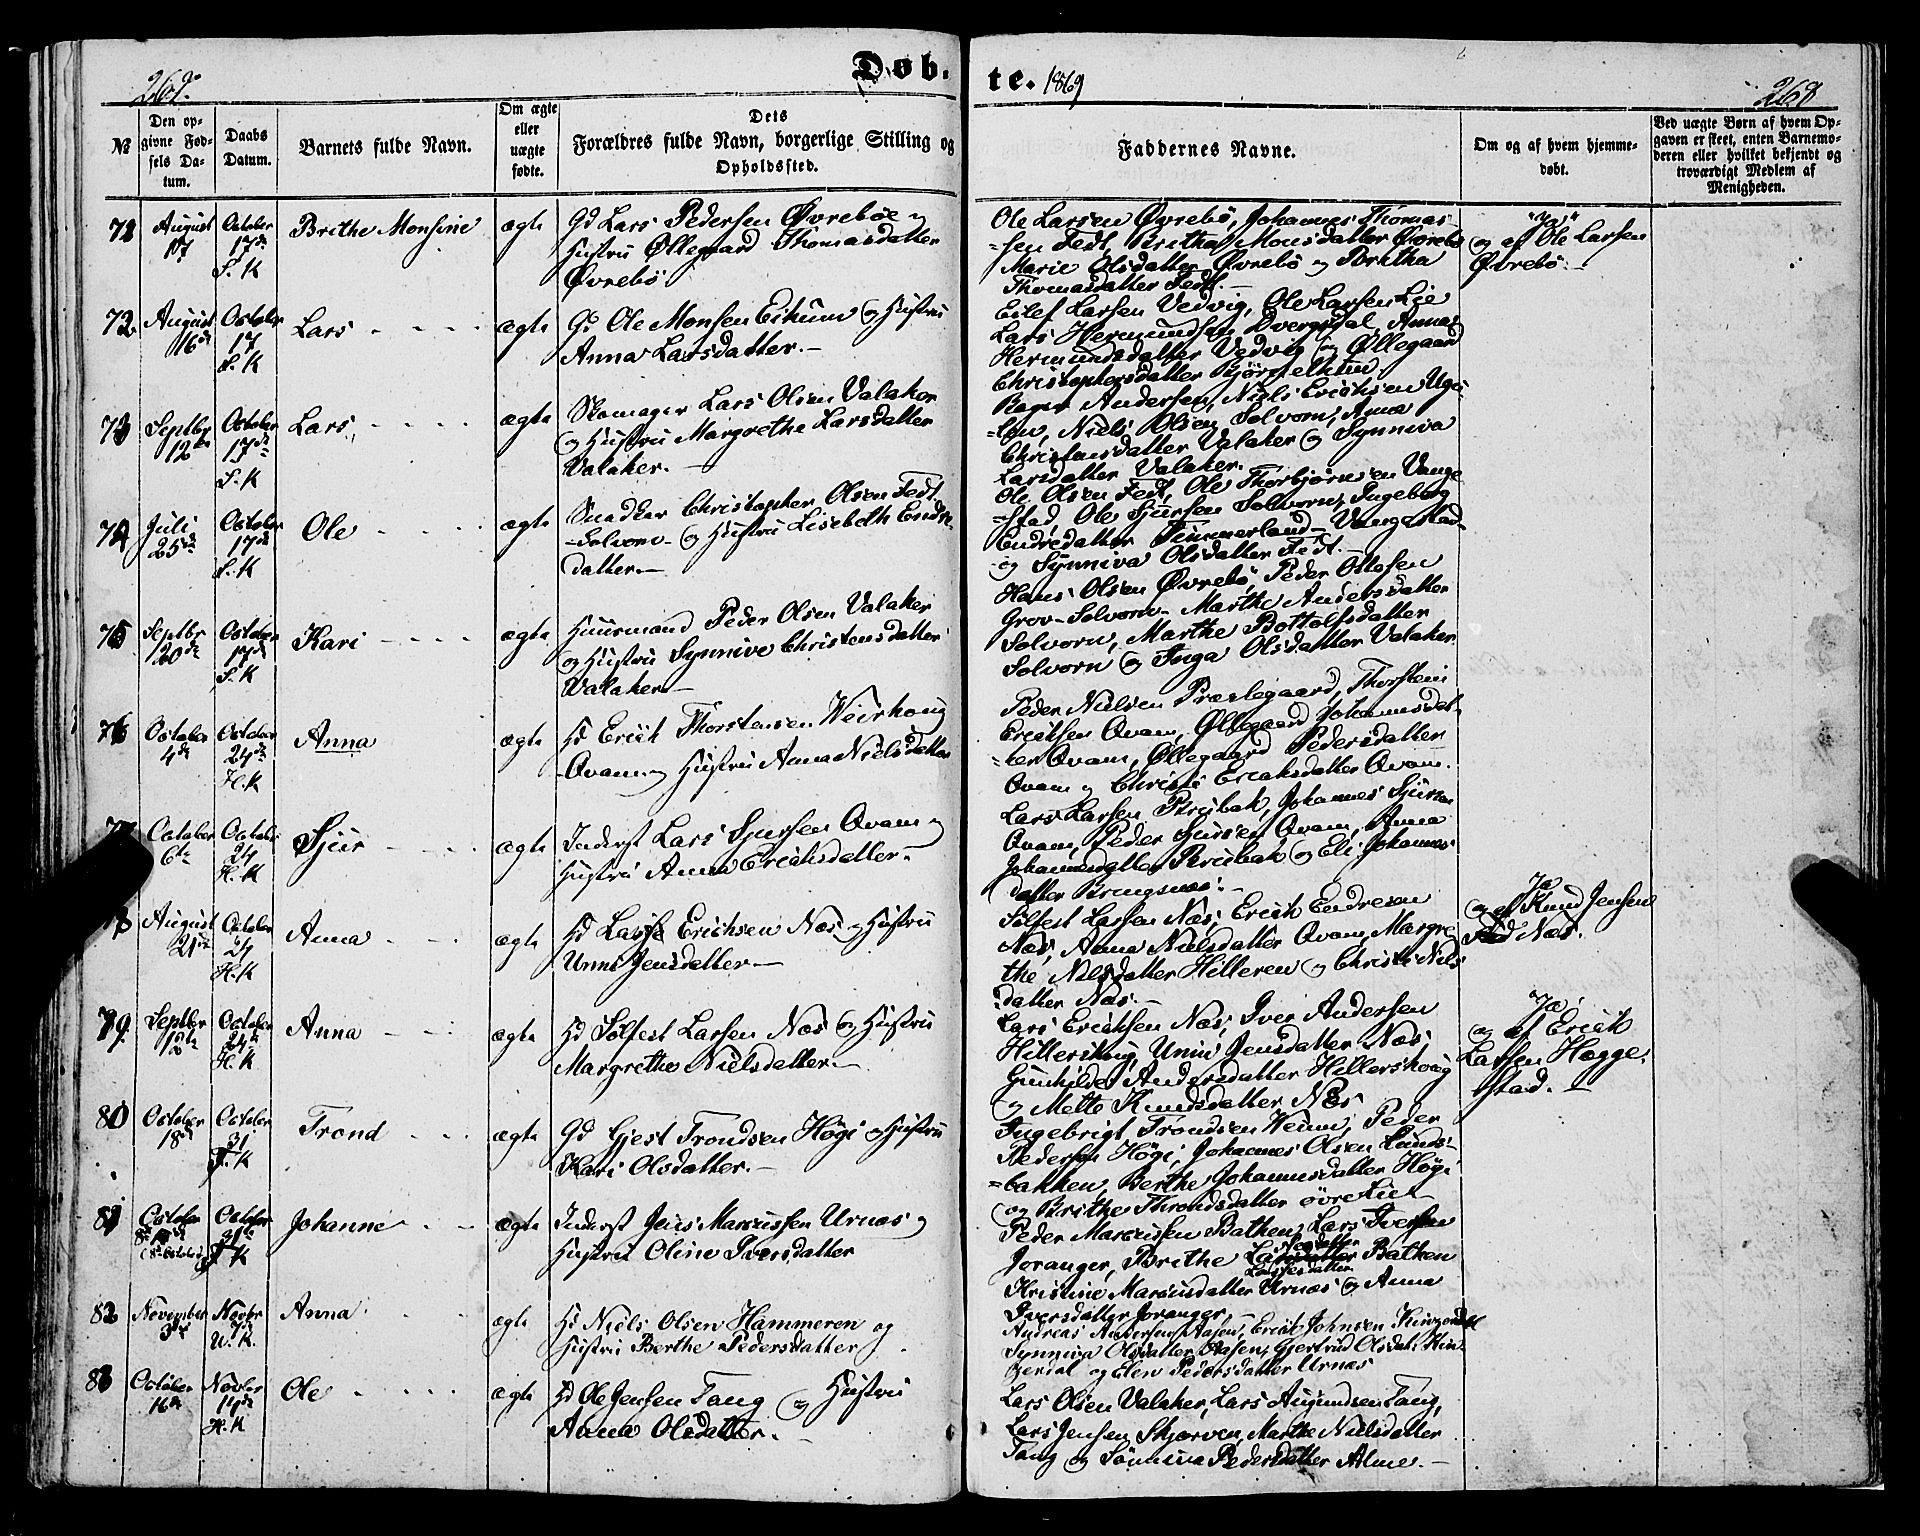 267.
Døb-
te. 1869
268
№
Den op-
givne Fød-
sels Da-
tum.
Daabs
Datum.
Barnets fulde Navn.
Om ægte
eller
uægte
fødte.
Dets
Forældres fulde Navn, borgerlige Stilling og
Opholdssted.
Faddernes Navne.
Om og af hvem hjemme-
døbt.
Ved uægte Børn af hvem Op-
gaven er skeet, enten Barnemo-
deren eller hvilket bekjendt og
troværdigt Medlem af
Menigheden.
71
August
17
October
17de
S. K
Brithe Monsine
ægte
Gd Lars Pedersen Øvrebøe og
Hustru Øllegaard Thomasdatter
Øvrebø
Ole Larsen Øvrebö, Johannes Thomas-
-sen Fedt, Britha Monsdatter Øvrebö
Marie Olsdatter Øvrebö og Britha
Thomasdatter Fedt.-
"Ja"
og af Ole Larsen
Øvrebö.-
72.
August
16de
October
17
S. K
Lars
ægte
Gd Ole Monsen Eikum og Hustru
Anna Larsdatter.-
Eilef Larsen Vedvig, Ole Larsen Lie
Lars Hermundsen Dvergsdal, Anna
Hermundsdatter Vedvig og Øllegaard
Christophersdatter
73
Septbr
12te
October
17de
S. K
Lars
ægte
Skomager Lars Olsen Valaker
og Hustru Margrethe Larsdatter
Valaker.-
Andersen, Niels Erichsen
Niels Olsen Solvorn, Anna
Christensdatter Valaker og Synniva
Larsdatter Valaker.
74
Juli
25de
October
17de
S. K
Ole
ægte
Snedker Christopher Olsen Fedt
-Solvorn- og Hustru Lisebeth Endre-
datter.-
Ole Olsen Fedt, Ole Thorbjørnsen Vange
-stad, Ole Sjursen Solvorn, Ingeborg
Endredatter Timmerland- Vangestad-
og Synniva Olsdatter Fedt.-
75
Septbr
20de
October
17de
S. K
Kari
ægte
Huusmand Peder Olsen Valaker
og Hustru Synnive Christensdatter
Valaker.-
Hans Olsen Øvrebö, Peder Ottesen
Grov-Solvorn- Marthe Andersdatter
Solvorn, Marthe Bottolfsdatter
Solvorn og Inga Olsdatter Valaker
76
October
4de
October
24de
H. K
Anna
ægte
Hd Erich Thorstensen
-Qvam og Hustru Anna Nielsdatter
Peder Nielsen Præstegaard, Thorstein
Erichsen Qvam, Øllegaard Johannesdat-
-ter Qvam, Øllegaard Pedersdatter
Qvam og Christi Erichsdatter Qvam.
77
October
6te
October
24
H. K
Sjur
ægte
Inderst Lars Sjursen Qvam og
Hustru Anna Erichsdatter.-
Lars Larsen Johannes Sjursen
Qvam, Peder Sjursen Qvam, Anna
Johannesdatter og Eli Johannes
datter Kringsnæs.-
78
August
21de
October
24
H. K
Anna
ægte
Hd Lasse Erichsen Næs og Hustru
Unni Jensdatter.-
Sølfest Larsen Næs, Erich Endresen
Næs, Anna Nielsdatter Qvam, Margre
the Nielsdatter Hilleren og Christi Niels
datter Næs.-
Ja
og af Knud Jensen
Næs.
79.
Septbr
October
24de
H. K
Anna
ægte
Hd Sølfest Larsen Næs og Hustru
Margrethe Nielsdatter.-
Lars Erichsen Næs, Iver Andersen
Hillershoug, Unni Jensdatter Næs,
Gunhilde Andersdatter Hillershoug
og Mette Knudsdatter Næs
"Ja"
og af Erich
Larsen Hegge-
stad.-
80
October
18de
October
31
J. K
Trond
ægte
Gd Gjest Trondsen Høgi og Hustru
Kari Olsdatter.-
Ingebrigt Trondsen Peder
Pedersen Høgi, Johannes Olsen Lunds-
-bakken, Berthe Johannesdatter Høgi
og Brithe Throndsdatter øvre Lie
81
October
(8de October)
October
31te
J. K
Johanne
ægte
Inderst Jens Marcussen Urnæs og
Hustru Oline Iversdatter
Peder Marcusen Bathen, Lars Iversen
Joranger, Brithe Lassesdatter Bathen
Kristine Marcusdatter Urnæs og Anna
Iversdatter Joranger.-
82
November
3de
Novbr
7de
U. K.
Anna
ægte
Hd Niels Olsen Hammeren og
Hustru Berthe Pedersdatter
Andreas Andersen Aasen, Erich Johnsen Kinzerdal
Synniva Olsdatter Aasen, Gjertrud Olsdatr Kin-
zerdal og Elen Pedersdatter Urnæs
83
October
16de
Novbr
14de
H. K
Ole
ægte
Hd Ole Jensen Tang og Hustru
Anna Olsdatter.-
Lars Olsen Valaker, Lars Amundsen Tang,
Lars Jensen Skjerven, Marthe Nielsdatter
Tang og Sönniva Pedersdatter Alme.-